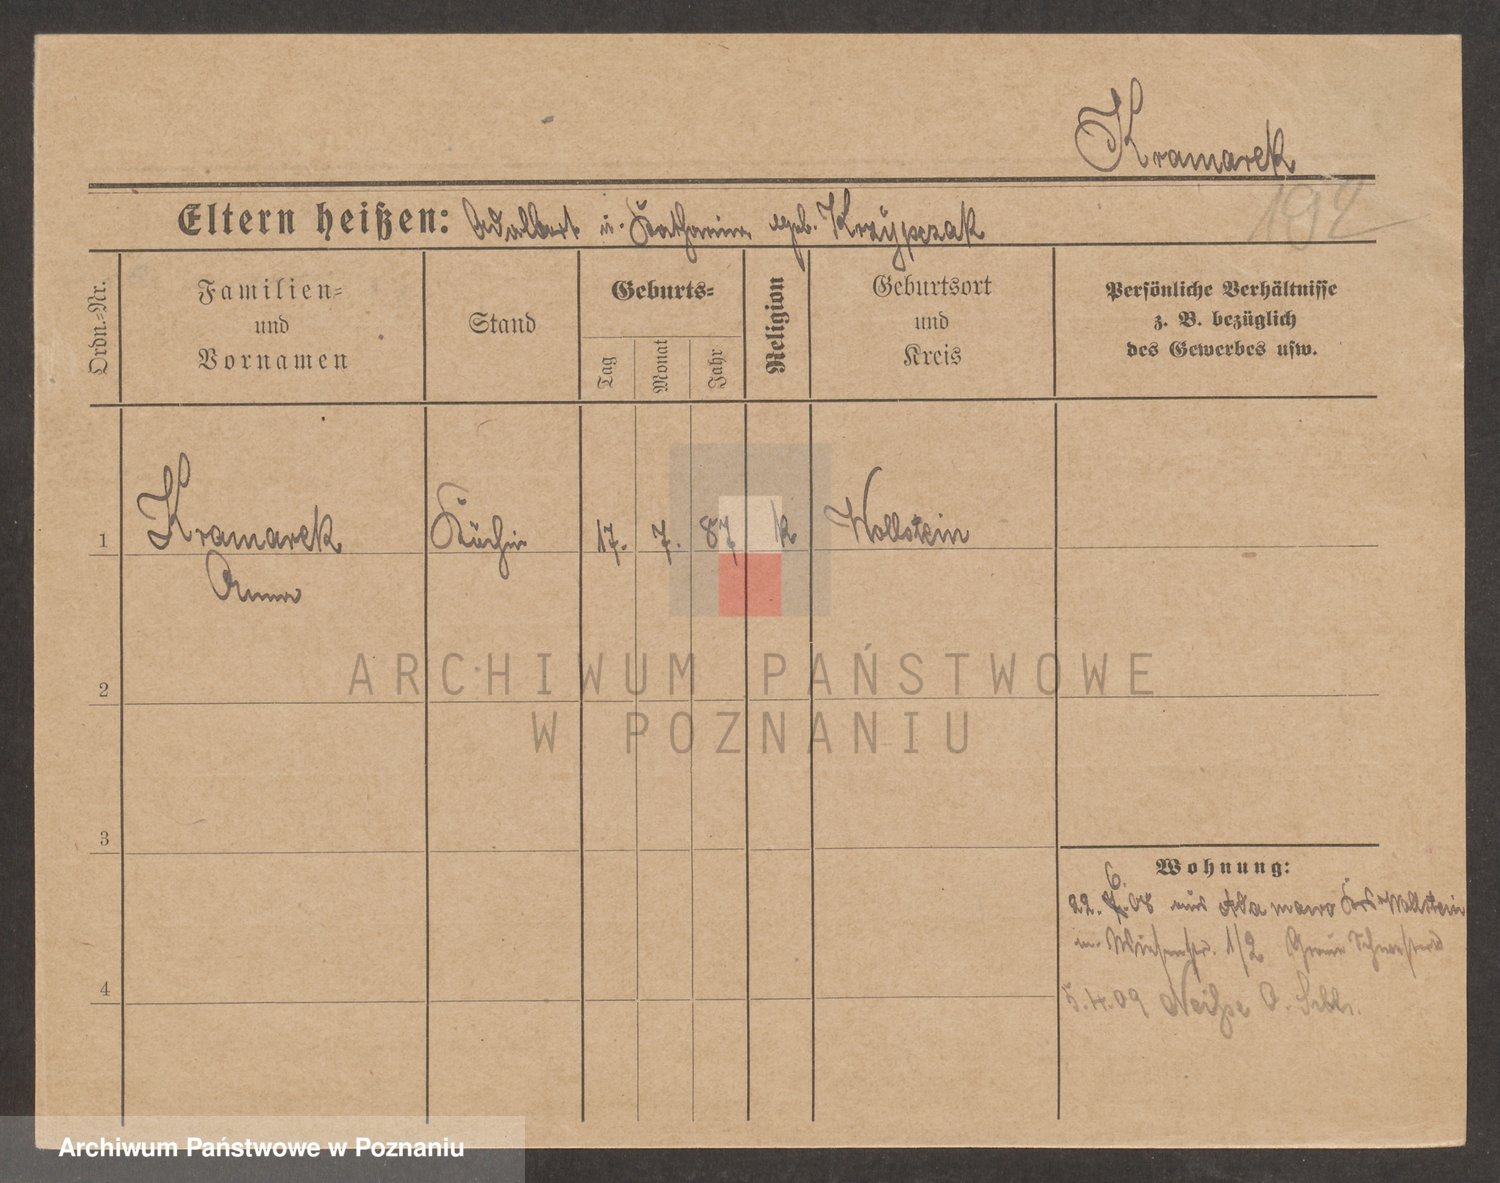 Kramarek
192
Eltern heißen: Adalbert u. Katharina geb. Krzypczak
Ordn.=Nr.
Familien=
und
Vornamen
Stand
Geburts=
Tag
Monat
Jahr
Religion
Geburtsort
und
Kreis
Persönliche Verhältnisse
z. B. bezüglich
des Gewerbes usw.
1 Kramarek Köchin 17. 7. 87 k Wollstein
Anna
ARCHIWUM PAŃSTWOWE
W POZNANIU
2
3
4
Wohnung:
6.
22. 08 aus Wollstein
1/2 Graue Schwestern
5.4.09 Neiße
Archiwum Państwowe w Poznaniu